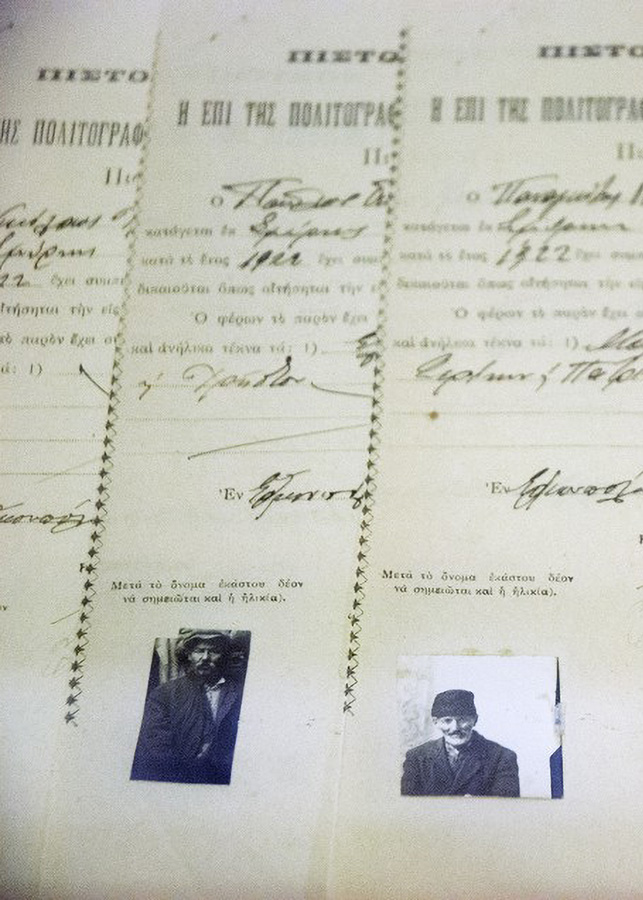 ΠΙΣΤΟ
ΗΣ ΠΟΛΙΤΟΓΡΑΦ
Πι
Σμύρνης
22 ἔχει συμπ
ἰτήσηται τὴν εἰς
τὸ παρὸν ἔχει
ά: 1)
ΠΙΣΤΟ
Η ΕΠΙ ΤΗΣ ΠΟΛΙΤΟΓΡΑΦ
Πι
Ὁ Παῦλος
κατάγεται ἐκ Σμύρνης
κατὰ τὸ ἔτος 1922 ἔχει συμ
δικαιοῦται ὅπως αἰτήσηται τὴν ε
Ὁ φέρων τὸ παρὸν ἔχει
καὶ ἀνήλικα τέκνα τά: 1)
Ἐν Ἑρμουπ
Μετὰ τὸ ὄνομα ἑκάστου δέον
νὰ σημειῶται καὶ ἡ ἡλικία).
ΠΙΣΤΟ
Η ΕΠΙ ΤΗΣ ΠΟΛΙΤΟΓΡΑΦ
Πι
Ὁ Παναγιώτης
κατάγεται ἐκ Σμύρνης
κατὰ τὸ ἔτος 1922 ἔχει συμπ
δικαιοῦται ὅπως αἰτήσηται τὴν εἰ
Ὁ φέρων τὸ παρὸν ἔχει σ
καὶ ἀνήλικα τέκνα τά: 1)
Ἐν Ἑρμουπόλ
Μετὰ τὸ ὄνομα ἑκάστου δέον
νὰ σημειῶται καὶ ἡ ἡλικία).